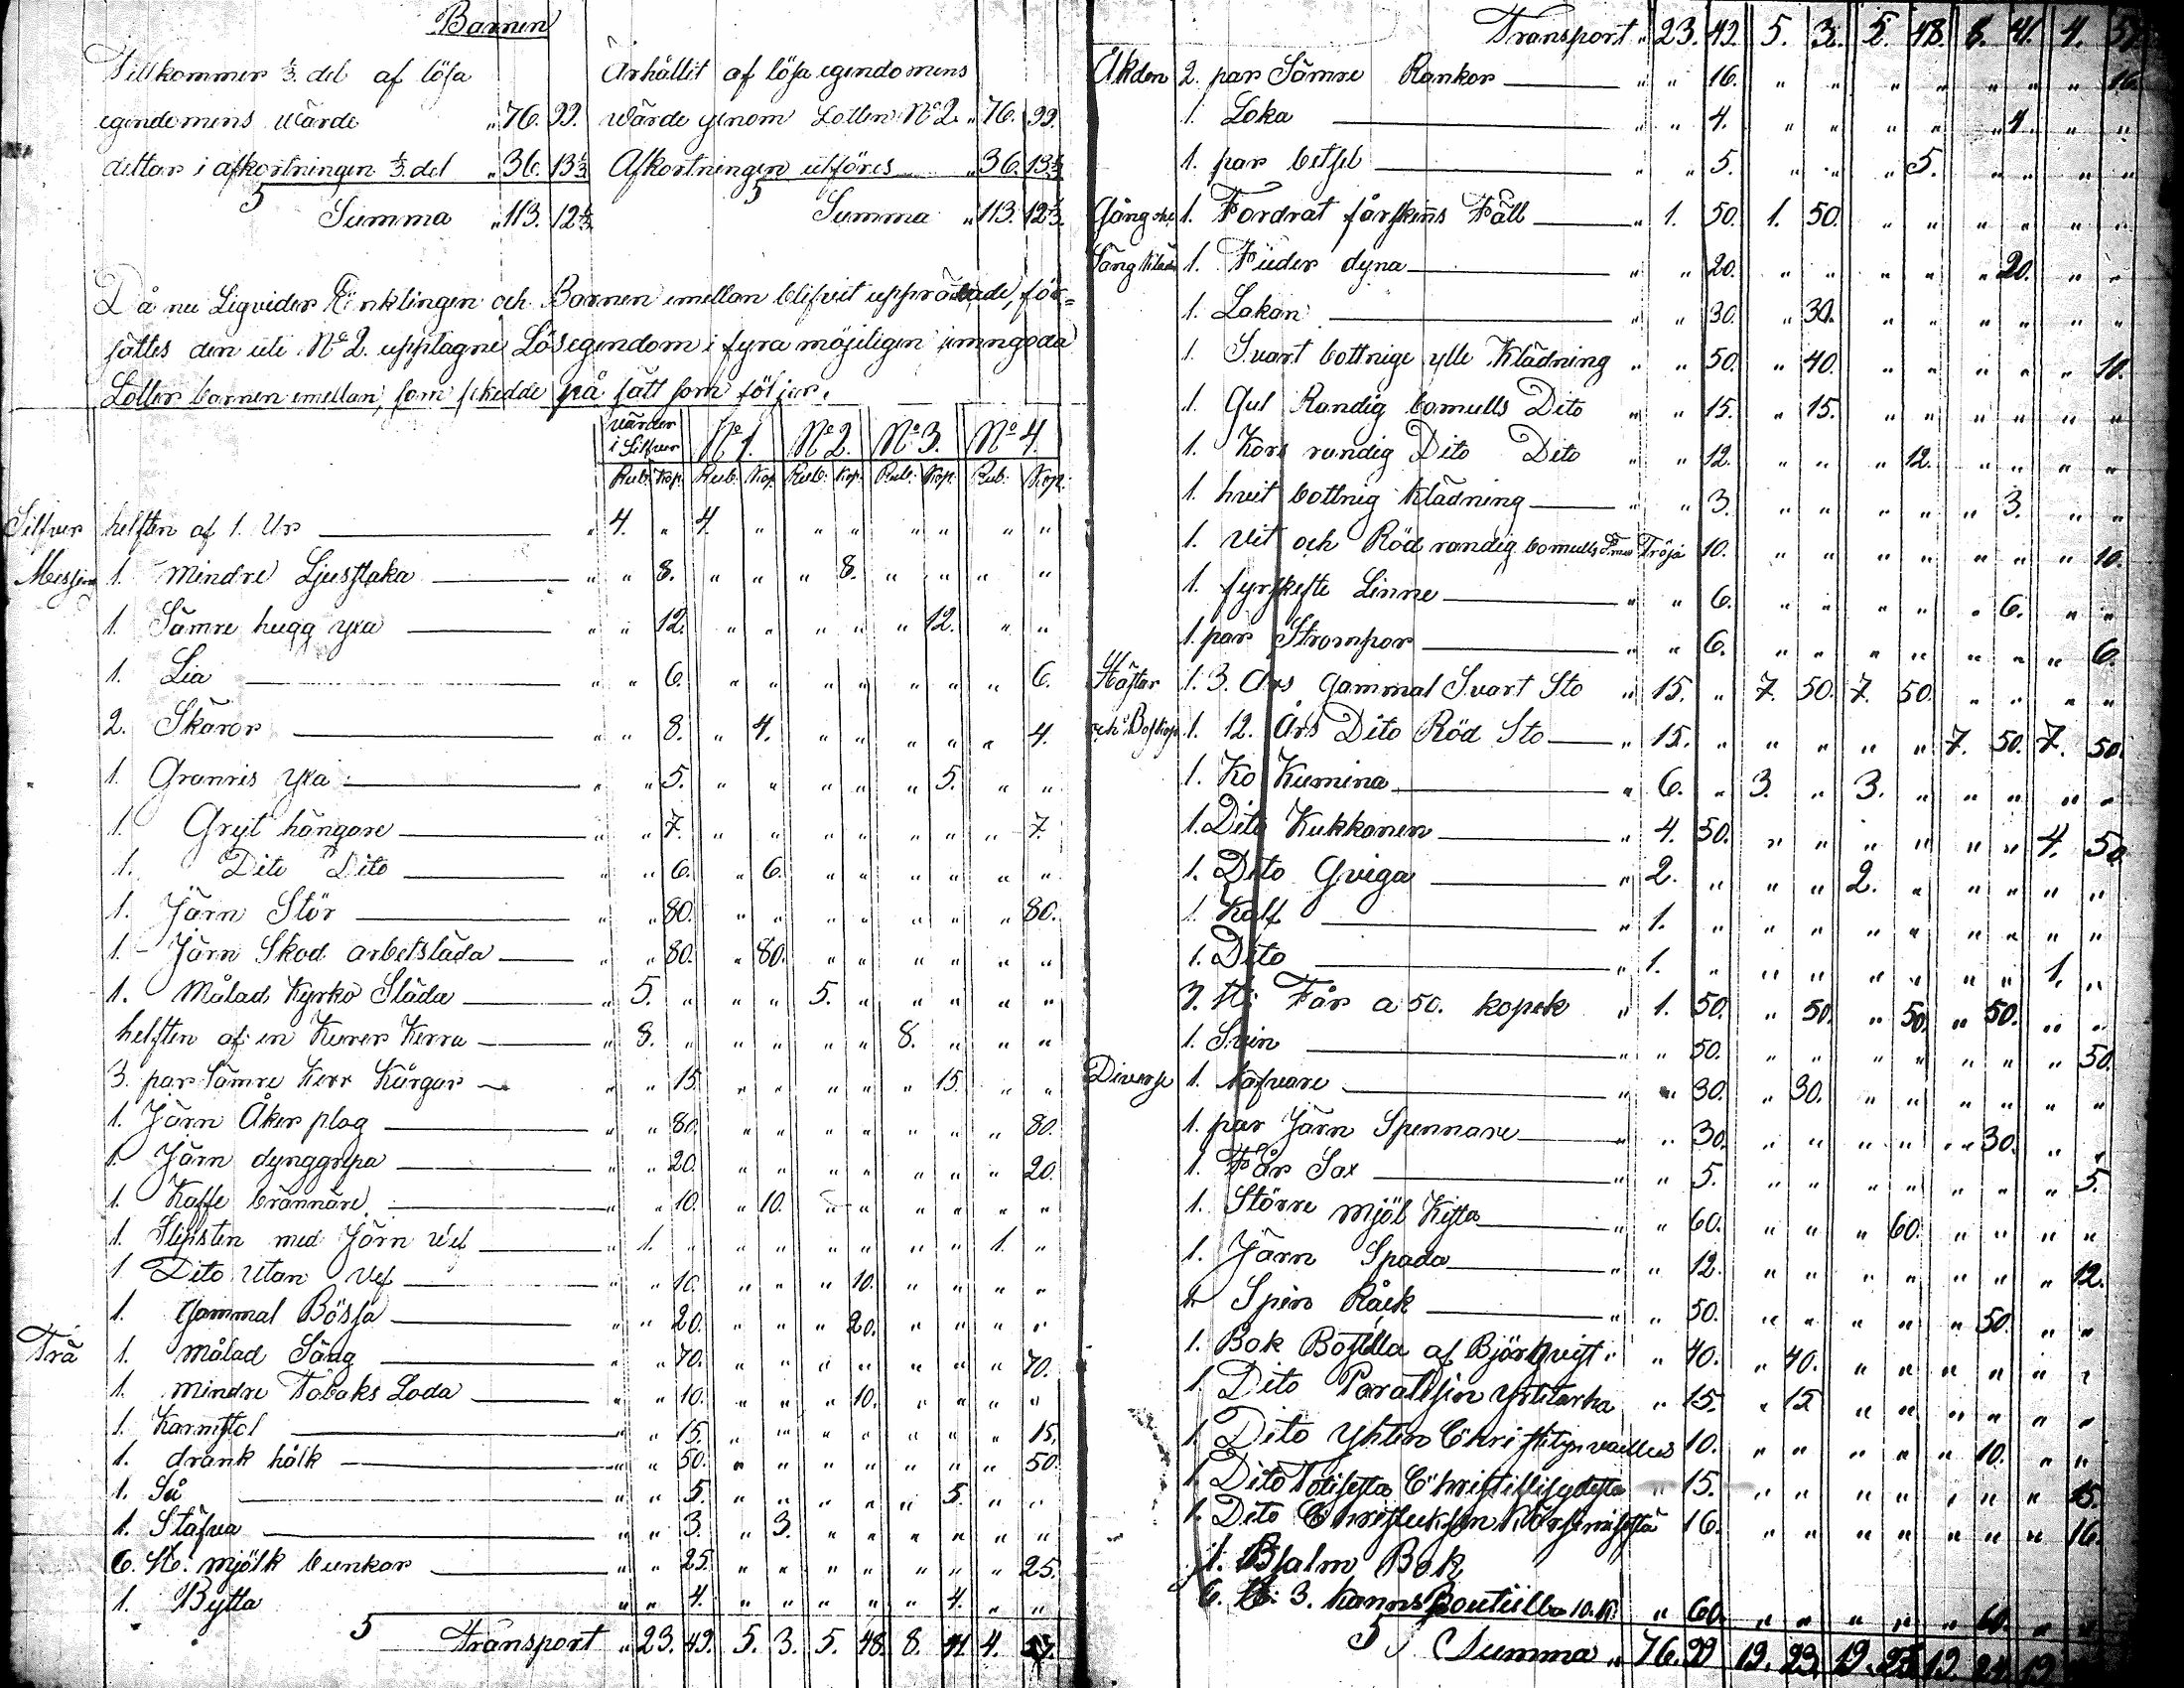 Barnen
Tillkommer ⅓ del af lösa
egendomens wärde " 76. 99.
deltar i afkortningen ⅓ del " 36. 13⅓
Summa " 113. 12⅓
Ärhållit af lösa egendomens
wärde genom Lotten No 2. " 76. 99.
Afkortningen utföres " 36. 13⅓
Summa " 113. 12⅓
Då nu Liqvider Enklingen och Barnen emellan blifvit upprättade, för=
sattes den uti No 2. upptagne Lösegendom i fyra möjeligen jemngoda
Lotter barnen emellan, som skedde på sätt som följer.
värder i Silfver No 1. No 2. No 3. No 4.
Rub. Kop. Rub. Kop. Rub. Kop. Rub. Kop. Rub. Kop.
Silfver helften af 1. Ur " 4. " 4. " " " " " " "
Messing 1. mindre Ljusstaka " " 8. " " " 8. " " " "
1. Sämre hugg yxa " " 12. " " " " " 12. " "
1. Lia " " 6. " " " " " " " 6.
2. Skäror " " 8. " 4. " " " " " 4.
1. Granris yxa " " 5. " " " " " 5. " "
1. Gryt hängare " " 7. " " " " " " " 7.
1. Dito Dito " " 6. " 6. " " " " " "
1. Järn Stör " " 80. " " " " " " " 80.
1. Järn Skod arbetsläda " " 80. " 80. " " " " " "
1. Målad Kyrko Släda " 5. " " " 5. " " " " "
helften af en Kurer Kerra " 8. " " " " " 8. " " "
3. par Sämre Kerr Kärgor " " 15. " " " " " 15. " "
1. Järn Åker plog " " 80. " " " " " " " 80.
1. Järn dynggrepa " " 20. " " " " " " " 20.
1. Kaffe brännare " " 10. " 10. " " " " " "
1. Slipsten med Järn Vef " 1. " " " " " " " 1. "
1 Dito utan Vef " " 10. " " " 10. " " " "
1. gammal Bössa " " 20. " " " 20. " " " "
Trä 1. målad Säng " " 70. " " " " " " " 70.
1. mindre Tobaks Loda " " 10. " " " 10. " " " "
1. Karmstol " " 15. " " " " " " " 15.
1. drank hålk " " 50. " " " " " " " 50.
1. Så " " 5. " " " " " 5. " "
1. Stäfva " " 3. " 3. " " " " " "
6. St: mjölk bunkor " " 25. " " " " " " " 25.
1. Bytta " " 4. " " " " " 4. " "
Transport " 23. 42. 5. 3. 5. 48. 8. 41. 4. 57.
Transport " 23. 42. 5. 3. 5. 48. 8. 41. 4. 57.
Åkdon 2. par Sämre Rankor " " 16. " " " " " " " 16.
1. Loka " " 4. " " " " " 4. " "
1. par betsel " " 5. " " " 5. " " " "
Gång och 1. Fordrat fårskinns Fäll " 1. 50. 1. 50. " " " " " "
Sängkläder 1. Fieder dyna " " 20. " " " " " 20. " "
1. Lakan " " 30. " 30. " " " " " "
1. Svart bottnige ylle Klädning " " 50. " 40. " " " " " 10.
1. Gul Randig bomulls Dito " " 15. " 15. " " " " " "
1. Kors randig Dito Dito " " 12. " " " 12. " " " "
1. hvit bottnig Klädning " " 3. " " " " " 3. " "
1. Vit och Röd randig bomulls Tröja 10. " " " " " " " 10.
1. fyrskefte Linne " " 6. " " " " " 6. " "
1. par Strompor " " 6. " " " " " " " 6.
Hästar 1. 3. Års gammal Svart Sto " 15. " 7. 50. 7. 50. " " " "
och Boskap 1. 12. Års Dito Röd Sto " 15. " " " " " 7. 50. 7. 50.
1. Ko Kumina " 6. " 3. " 3. " " " " "
1. Dito Kukkonen " 4. 50. " " " " " " 4. 50.
1. Dito Qviga " 2. " " " 2. " " " " "
1. Kalf " 1. " " " " " " " " "
1. Dito " 1. " " " " " " " 1. "
3. St: Får a 50. kopek " 1. 50. " 50. " 50. " 50. " "
1. Svin " " 50. " " " " " " " 50.
Diverse 1. Nafvare " " 30. " 30. " " " " " "
1. par Järn Spennare " " 30. " " " " " 30. " "
1. Får Sax " " 5. " " " " " " " 5.
1. Större mjöl Kista " " 60. " " " 60. " " " "
1. Järn Spada " " 12. " " " " " " " 12.
1. Spin Råck " " 50. " " " " " 50. " "
1. Bok Postilla af Björkqvist " " 40. " 40. " " " " " "
1. Dito Paratisin Yrtitarha " 15. " 15 " " " " " "
1. Dito Yhten 10. " " " " " 10. " "
1. Dito " 15. " " " " " " " 15.
1. Dito 16. " " " " " " " 16.
1. Psalm Bok
6. St: 3. Kanns Bouteille 10. K. " 60. " " " " " 60. " "
Summa " 76. 99 19. 23. 19. 25. 19. 24. 19.